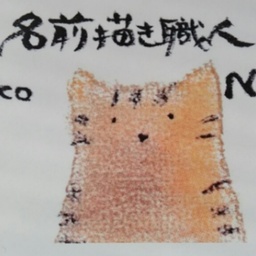 名前描き職人
co N